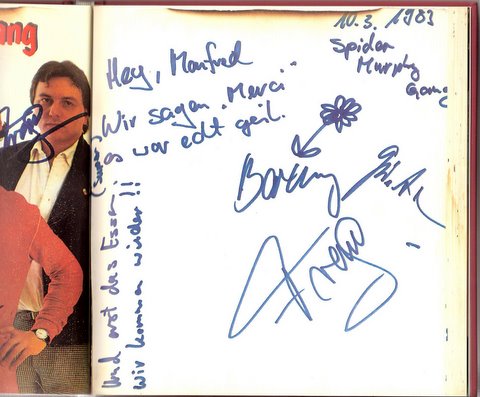 ang
10.3. 1983
Spider
Murphy
Gang
Hey, Manfred
Wir sagen "Merci"
es war echt geil.
Barny
Franz
Und erst das Essen.
Wir kommen wieder!!